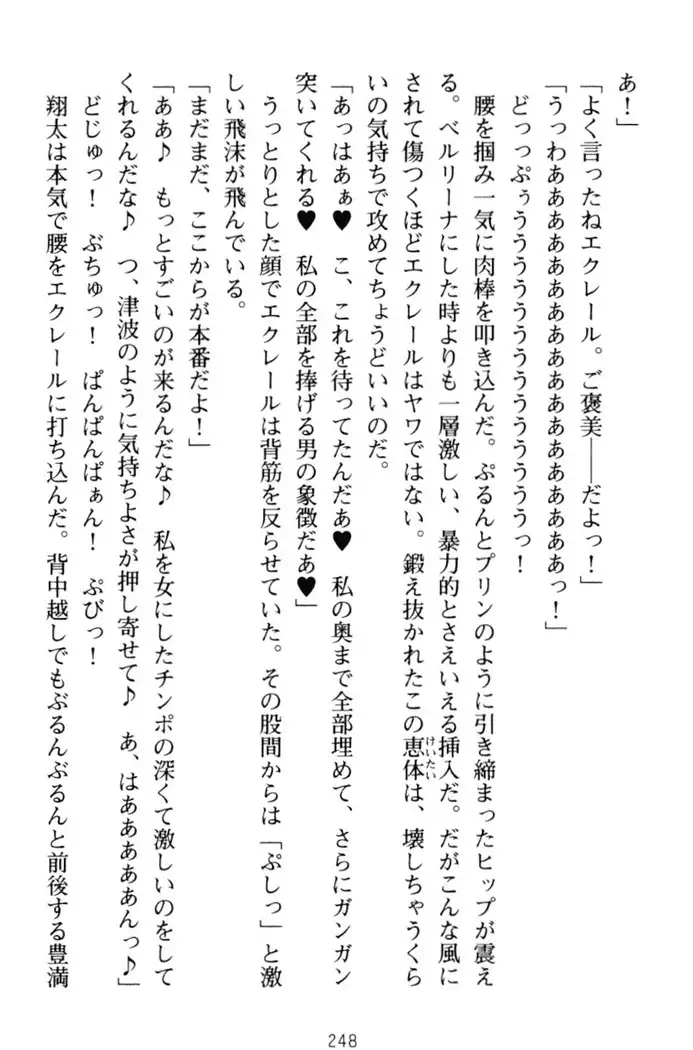 あ！」
「よく言ったねエクレール。ご褒美――だよっ！」
「うっわあああああああああああああああああああっ！」
どっっぷぅううううううううううううううっ！
腰を掴み一気に肉棒を叩き込んだ。ぷるんとプリンのように引き締まったヒップが震え
る。ベルリーナにした時よりも一層激しい、暴力的とさえいえる挿入だ。だがこんな風に
されて傷つくほどエクレールはヤワではない。鍛え抜かれたこの恵体（けいたい）は、壊しちゃうくら
いの気持ちで攻めてちょうどいいのだ。
「あっはあぁ♥　こ、これを待ってたんだあ♥　私の奥まで全部埋めて、さらにガンガン
突いてくれる♥　私の全部を捧げる男の象徴だあ♥」
うっとりとした顔でエクレールは背筋を反らせていた。その股間からは「ぷしっ」と激
しい飛沫が飛んでいる。
「まだまだ、ここからが本番だよ！」
「ああ♪　もっとすごいのが来るんだな♪　私を女にしたチンポの深くて激しいのをして
くれるんだな♪　つ、津波のように気持ちよさが押し寄せて♪　あ、はあああああんっ♪」
どじゅっ！　ぶちゅっ！　ぱんぱんぱぁん！　ぷびっ！
翔太は本気で腰をエクレールに打ち込んだ。背中越しでもぶるんぶるんと前後する豊満
248